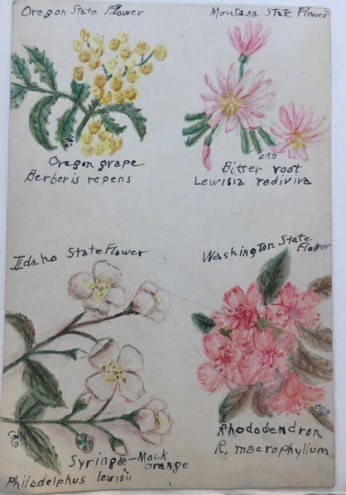 Oregon State Flower
Oregon grape
Berberis repens
Montana State Flower
Bitter root
Lewisia rediviva
Idaho State Flower
Syringa-Mock
orange
Philadelphus lewisii
Washington State
Flower
Rhododendron
R, macrophyllum